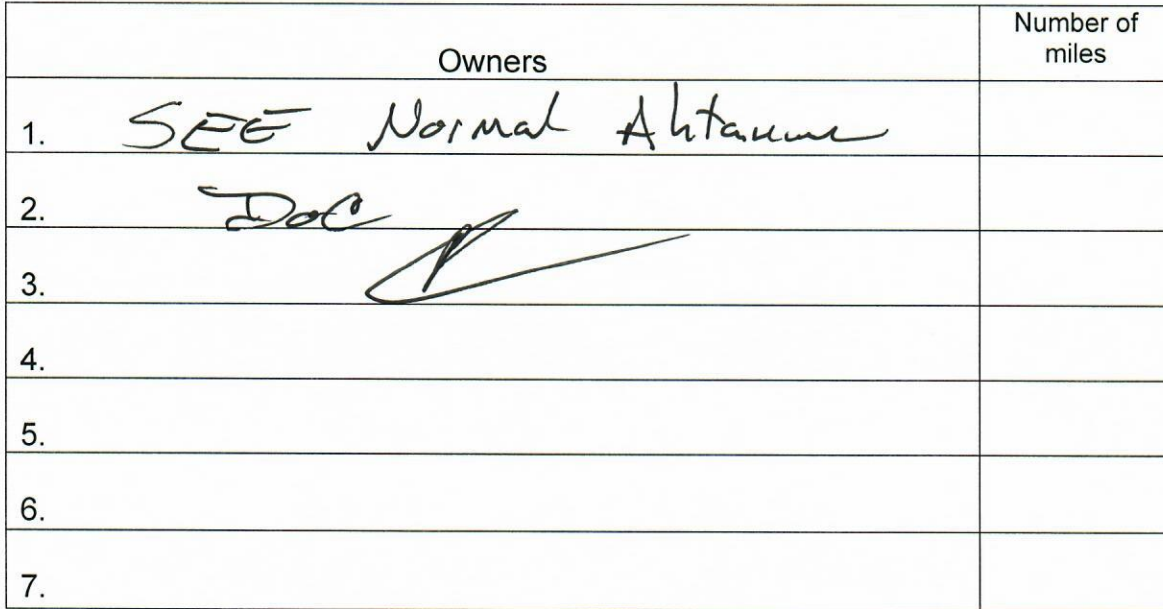 Owners
Number of
miles
1. SEE Normal Ahtanum
2. DOC
3.
4.
5.
6.
7.